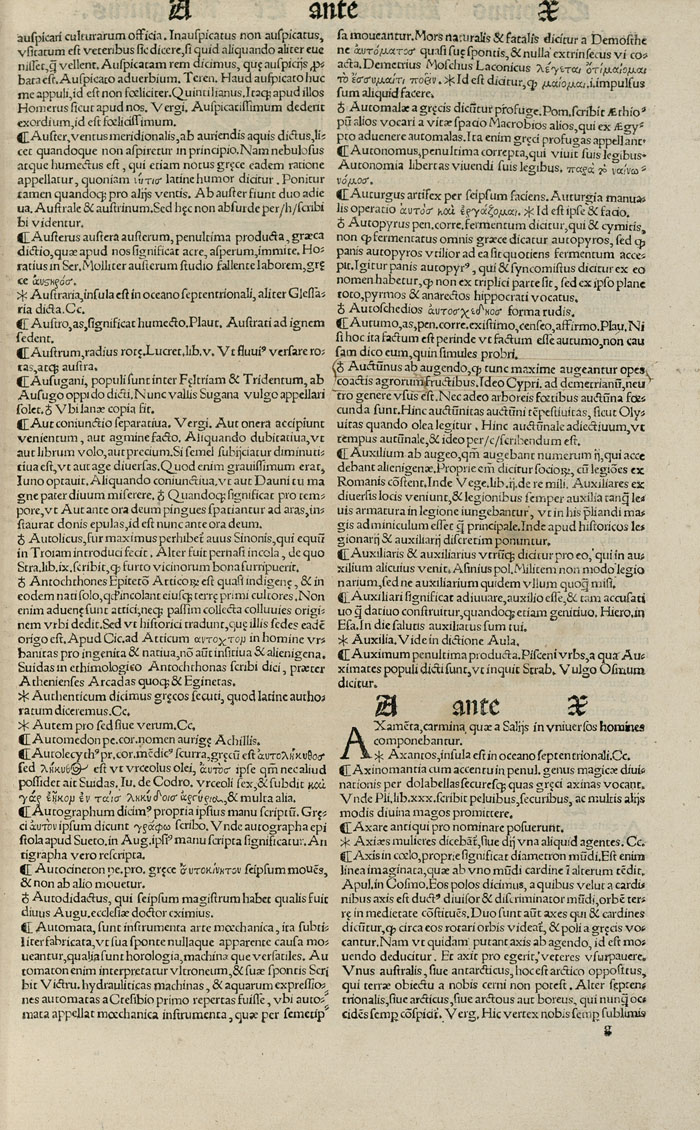 A ante X
auspicari culturarum officia. Inauspicatus non auspicatus,
vsitatum est veteribus sic dicere, si quid aliquando aliter eue
nisset, q̃ vellent. Auspicatam rem dicimus, quę auspicijs ꝓ-
bata est. Auspicato aduerbium. Teren. Haud auspicato huc
me appuli, id est non fœliciter. Quintilianus. Itaq; apud illos
Homerus sicut apud nos. Vergi. Auspicatissimum dederit
exordium, id est fœlicissimum.
¶ Auster, ventus meridionalis, ab auriendis aquis dictus, li-
cet quandoque non aspiretur in principio. Nam nebulosus
atque humectus est, qui etiam notus gręce eadem ratione
appellatur, quoniam latine humor dicitur. Ponitur
tamen quandoq; pro alijs ventis. Ab auster fiunt duo adie
ua. Australe & austrinum. Sed hęc non absurde per/h/scribi
bi videntur.
¶ Austerus austera austerum, penultima producta, græca
dictio, quæ apud nos significat acre, asperum, immite. Ho-
ratius in Ser. Molliter austerum studio fallente laborem, grę
ce
✳ Austraria, insula est in oceano septentrionali, aliter Glessa-
ria dicta. Cc.
¶ Austro, as, significat humecto. Plaut. Austrati ad ignem
sedent.
¶ Austrum, radius rotę. Lucret. lib. v. Vt fluuiꝰ versare ro-
tas, atq; austra.
¶ Ausugani, populi sunt inter Feltriam & Tridentum, ab
Ausugo oppido dicti. Nunc vallis Sugana vulgo appellari
solet. ♁ Vbi lanæ copia fit.
¶ Aut coniunctio separatiua. Vergi. Aut onera accipiunt
venientum, aut agmine facto. Aliquando dubitatiua, vt
aut librum volo, aut precium. Si semel subijciatur diminuti-
tiua est, vt aut age diuersas. Quod enim grauissimum erat,
Iuno optauit. Aliquando coniunctiua, vt aut Dauni tu ma
gne pater diuum miserere. ♁ Quandoq; significat pro tem-
pore, vt Aut ante ora deum pingues spatiantur ad aras, in-
staurat donis epulas, id est nunc ante ora deum.
♁ Autolicus, fur maximus perhibet̃ auus Sinonis, qui equũ
in Troiam introduci fecit. Alter fuit pernasi incola, de quo
Stra. lib. ix. scribit, q; furto vicinorum bona surripuerit.
♁ Antochthones Epitetõ Atticorę est quasi indigenę, & in
eodem nati solo, q; Pincolant eiusq; terrę primi cultores. Non
enim aduenę sunt attici, neq; passim collecta colluuies origi-
nem vrbi dedit. Sed vt historici tradunt, quę illis sedes eadẽ
origo est. Apud Cic. ad Atticum αυτοχτομ in homine vr-
banitas pro ingenita & natiua, nõ aũt insitiua & alienigena.
Suidas in ethimologico Antochthonas scribi dici, præter
Athenienses Arcadas quoq; & Eginetas.
✳ Authenticum dicimus gręcos secuti, quod latine autho-
ratum diceremus. Cc.
✳ Autem pro sed siue verum. Cc.
¶ Automedon pe. cor. nomen aurigę Achillis.
¶ Autolecythꝰ pr, cor. mẽdicꝰ scurra, gręcũ est αυτολήκυθος
sed λήκυθος est vt vrceolus olei, αυτος ipse qm̃ necaliud
possidet ait Suidas. Iu. de Codro. vrceoli sex, & subdit καὶ
γὰρ ἐν ταῖσ & multa alia.
¶ Autographum dicimꝰ propria ipsius manu scriptũ. Grę-
ci αυτον ipsum dicunt γράφω scribo. Vnde autographa epi
stola apud Sueto. in Aug. ipsiꝰ manu scripta significatur. An
tigrapha vero rescripta.
¶ Autocineton pe. pro. gręce αυτοκίνητον seipsum mouẽs,
& non ab alio mouetur.
♁ Autodidactus, qui seipsum magistrum habet qualis fuit
diuus Augu. ecclesiæ doctor eximius.
¶ Automata, sunt instrumenta arte mœchanica, ita subti-
liter fabricata, vt sua sponte nullaque apparente causa mo-
ueantur, qualia sunt horologia, machina que versatiles. Au
tomaton enim interpretatur vltroneum, & suæ spontis Scri
bit Victru. hydrauliticas machinas, & aquarum expressio-
nes automatas a Ctesibio primo repertas fuisse, vbi auto-
mata appellat mœchanica instrumenta, quæ per semetip
sa moueantur. Mors naturalis & fatalis dicitur a Demosthe
ne αυτόματος quasi suę spontis, & nulla extrinsecus vi co-
acta. Demetrius Moschus Laconicus λέγεται
✳ Id est dicitur, q; i. impulsus
sum aliquid facere.
♁ Automalæ a gręcis dicũtur profugę. Pom. scribit Æthio
pũ alios vocari a vitæ spacio Macrobios alios, qui ex Ægy-
pto aduenere automalas. Ita enim gręci profugas appellant
¶ Autonomus, penultima correpta, qui viuit suis legibus.
Autonomia libertas viuendi suis legibus. παρὰ
νόμος.
¶ Auturgus artifex per seipsum faciens. Auturgia manua-
lis operatio αυτοσ καὶ ἐργάζομαι. ✳ Id est ipse & facio.
♁ Autopyrus pen. corre. fermentum dicitur, qui & cymitis,
non q; fermentatus omnis græce dicatur autopyros, sed q;
panis autopyros vtilior ad ea sit quotiens fermentum acce-
pit. Igitur panis autopyrꝰ, qui & syncomistus dicitur ex eo
nomen habetur, q; non ex triplici parte sit, sed ex ipso plane
toto, pyrmos & anarectos hippocrati vocatus.
♁ Autoschedios forma rudis.
¶ Autumo, as, pen. corre. existimo, censeo, affirmo. Plau. Ni
si hoc ita factum est perinde vt factum esse autumo, non cau
sam dico eum, quin simules probri.
♁ Auctũnus ab augendo, q; tunc maxime augeantur opes
coactis agrorum fructibus. Ideo Cypri. ad demetrianũ, neu
tro genere vsus est. Nec adeo arboreis fœtibus auctũna fœ-
cunda sunt. Hinc auctũnitas auctũni tẽpestiuitas, sicut Oly
uitas quando olea legitur. Hinc auctũnale adiectiuum, vt
tempus autũnale, & ideo per/c/scribendum est.
¶ Auxilium ab augeo, qm̃ augebant numerum ij, qui acce
debant alienigenæ. Proprie em̃ dicitur socioꝝ, cũ legiões ex
Romanis cõstent. Inde Vege. lib. ij. de re mili. Auxiliares ex
diuersis locis veniunt, & legionibus semper auxilia tanq̃ le-
uis armatura in legione iungebantur, vt in his p̃liandi ma-
gis adminiculum esset q̃ principale. Inde apud historicos le
gionarij & auxiliarij discretim ponuntur.
¶ Auxiliaris & auxiliarius vtrũq; dicitur pro eo, qui in au-
xilium alicuius venit. Asinius pol. Militem non modo legio
narium, sed ne auxiliarium quidem vllum quoq̃ misi.
¶ Auxiliari significat adiuuare, auxilio esse, & tam accusati
uo q̃ datiuo construitur, quandoq; etiam genitiuo. Hiero. in
Esa. In die salutis auxiliatus sum tui.
✳ Auxilia. Vide in dictione Aula.
¶ Auximum penultima producta. Pisceni vrbs, a qua Au-
ximates populi dicti sunt, vt inquit Strab. Vulgo Osmum
dicitur.
A ante X
AXamẽta, carmina quæ a Salijs in vniuersos homines
componebantur.
✳ Axantos, insula est in oceano septentrionali. Cc.
¶ Axinomantia cum accentu in penul. genus magicæ diui-
nationis per dolabellas securesq; quas gręci axinas vocant.
Vnde Pli. lib. xxx. scribit peluibus, securibus, ac multis alijs
modis diuina magos promittere.
¶ Axare antiqui pro nominare posuerunt.
✳ Axiæs mulieres dicebãt, siue dij vna aliquid agentes. Cc.
¶ Axis in cœlo, proprie significat diametron mũdi. Est enim
linea imaginata, quæ ab vno mũdi cardine ĩ alterum tẽdit.
Apul. in Cosmo. Eos polos dicimus, a quibus velut a cardi-
nibus axis est ductꝰ diuisor & discriminator mũdi, orbẽ ter-
rę in medietate cõstituẽs. Duo sunt aũt axes qui & cardines
dicũtur, q; circa eos rotari orbis videat̃, & poli a gręcis vo-
cantur. Nam vt quidam putant axis ab agendo, id est mo-
uendo deducitur. Et axit pro egerit, veteres vsurpauere.
Vnus australis, siue antarcticus, hoc est arctico oppositus,
qui terræ obiectu a nobis cerni non potest. Alter septen-
trionalis, siue arcticus, siue arctous aut boreus, qui nunq̃ oc-
cidẽs semp̃ cõspicit̃. Verg. Hic vertex nobis semp̃ sublimis
g